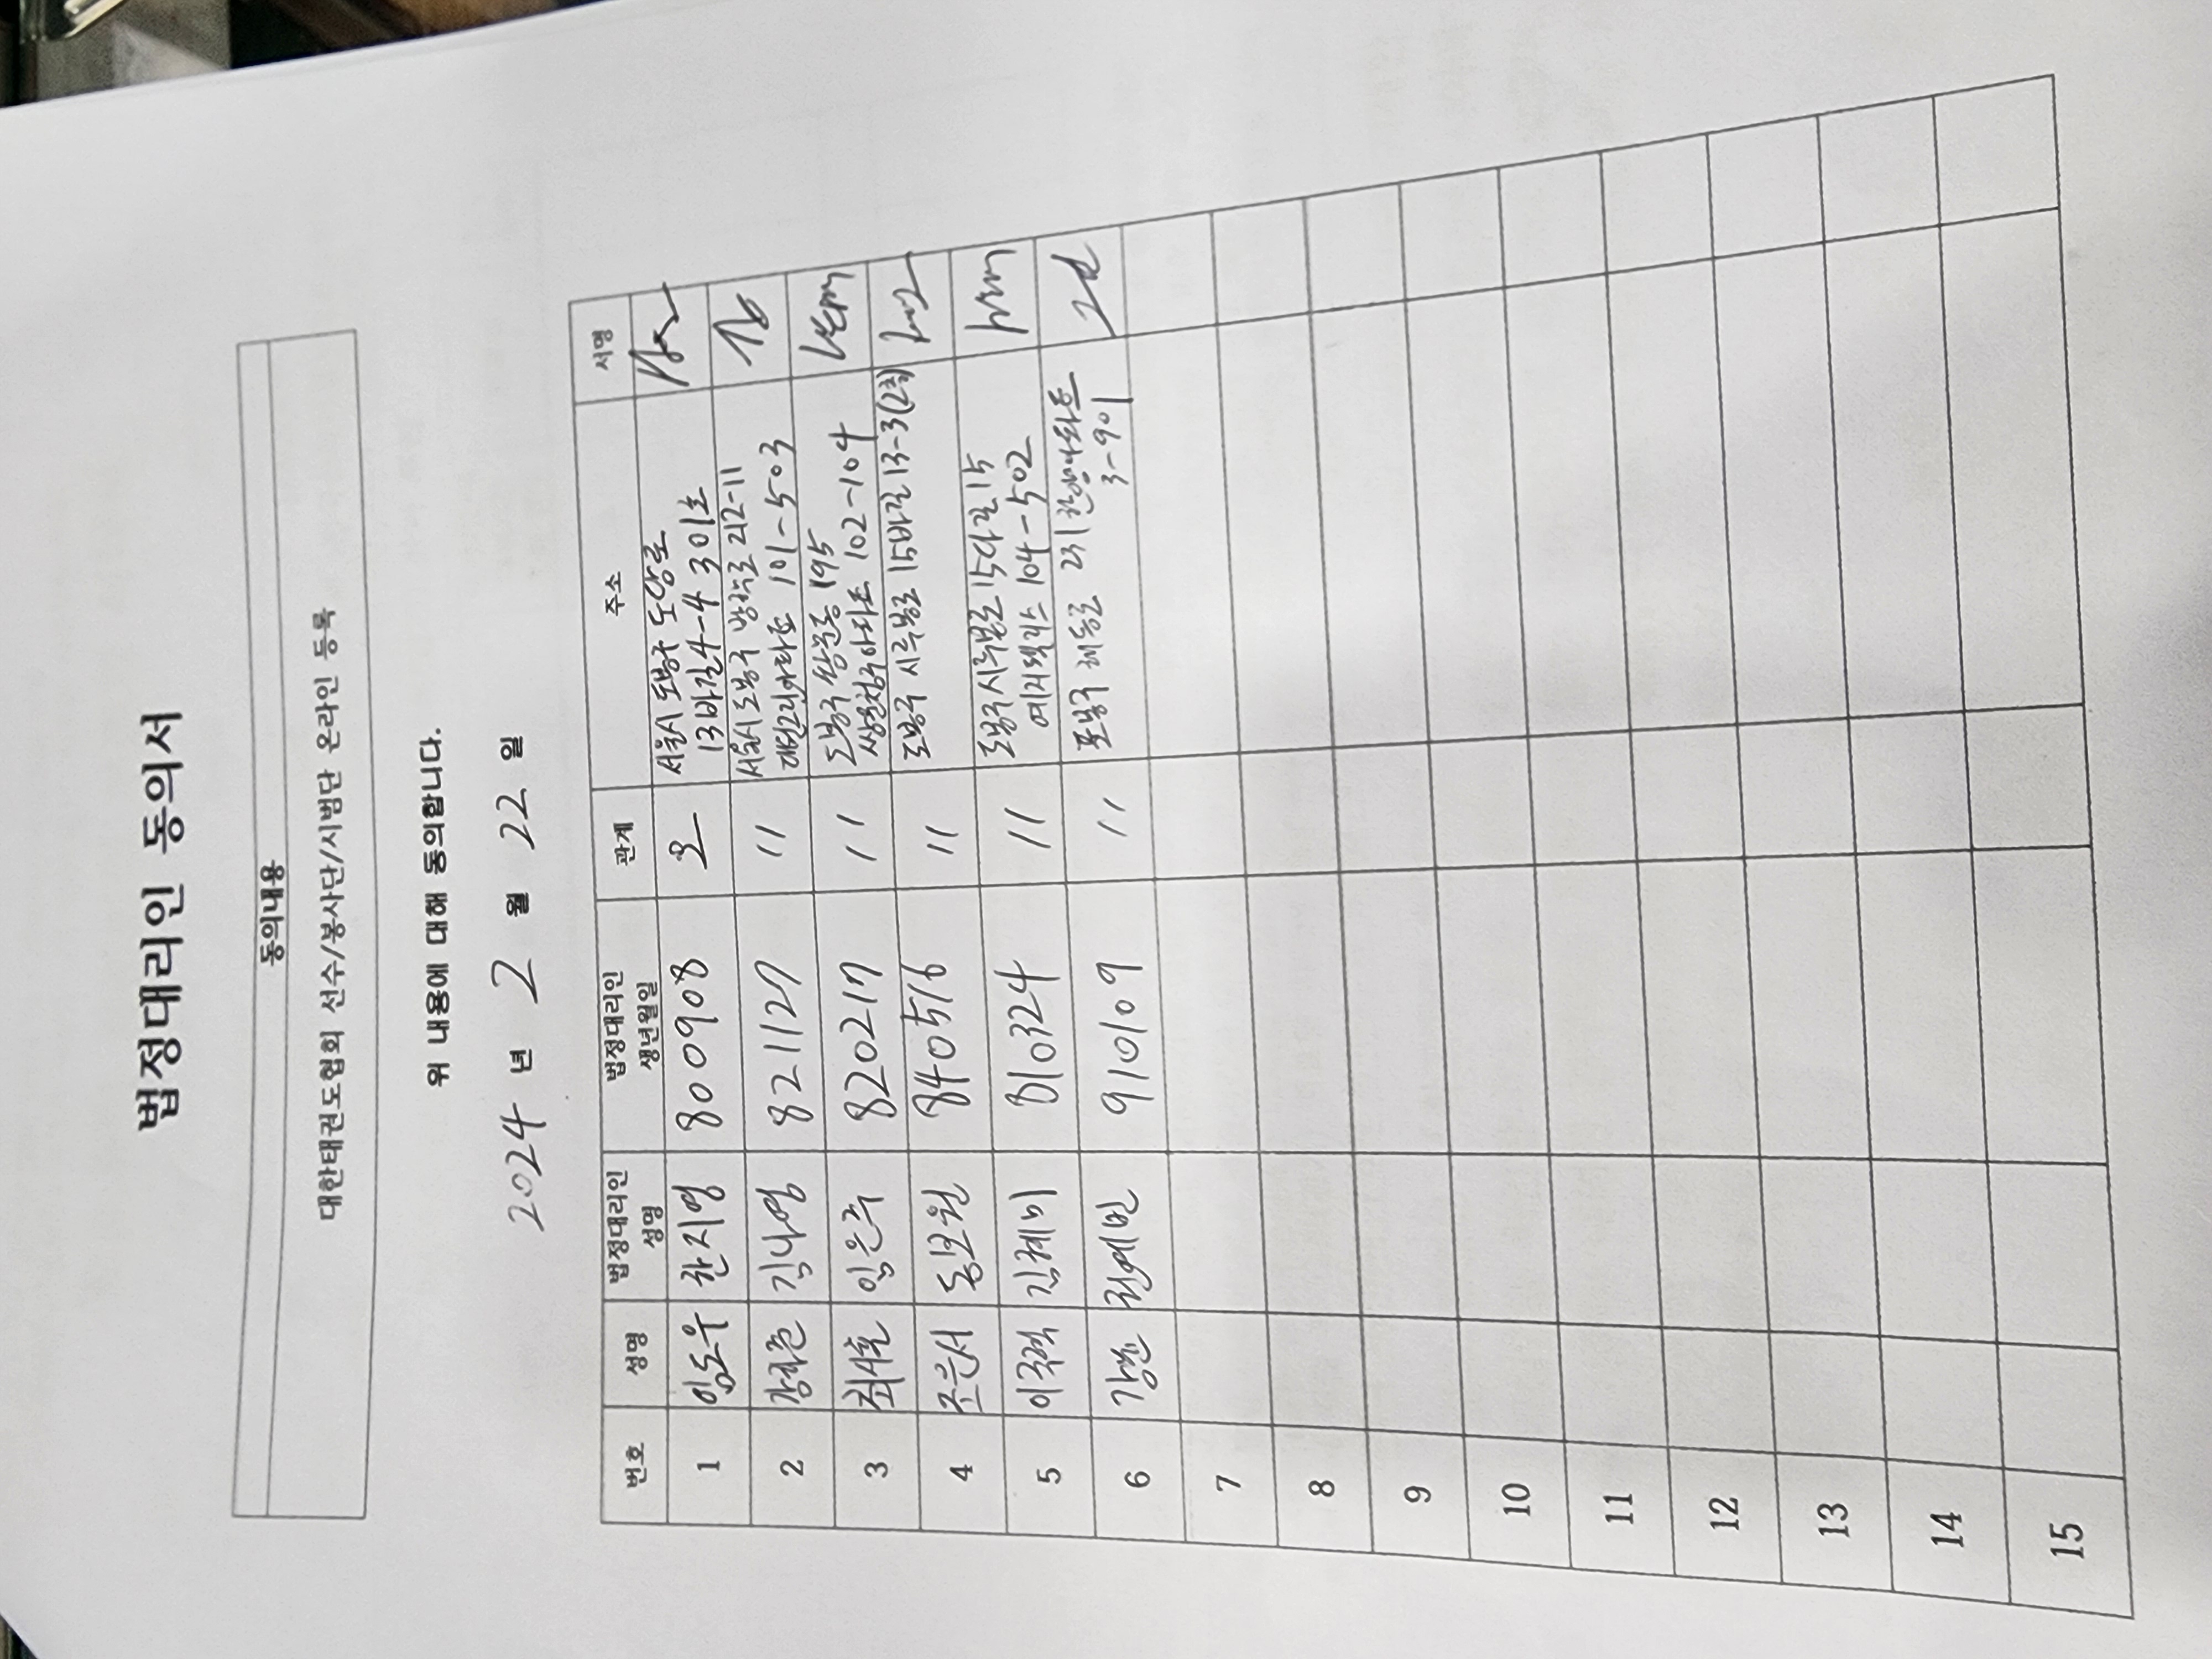 법정대리인 동의서
동의내용
대한태권도협회 선수/봉사단/시범단 온라인 등록
위 내용에 대해 동의합니다.
2024 년 2 월 22 일
번호 성명 법정대리인 성명 법정대리인 생년월일 관계 주소 서명
1 임도우 한지영 800908 모 서울시 도봉구 도당로
13바길4-4 301호
2 김나영 821127 〃 서울시 도봉구 방학로 212-11
대원그린아파트 101-503
3 최서호 임은주 820217 〃 도봉구 쌍문동 195
쌍문청구아파트 102-104
4 조은서 840516 〃 도봉구 시루봉로 15바길 13-3(2층)
5 김혜비 810324 〃 도봉구 시루봉로 15다길 15
104-502
6 권예빈 910109 〃 도봉구 해등로 231
3-901
7
8
9
10
11
12
13
14
15